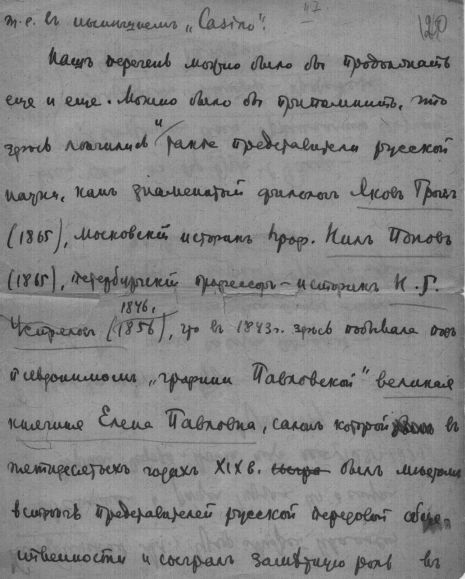 т.е. въ нынѣшнемъ „Casino“.
120
Нашъ перечень можно было бы продолжать
еще и еще. Можно было бы припомнить, что
здѣсь лѣчились и такіе представители русской
науки, какъ знаменитый филологъ Яковъ Гротъ
(1865), московскій историкъ проф. Нилъ Поповъ
(1865), петербургскій профессоръ-историкъ Н. Г.
1846.
Устряловъ (1856), что въ 1843 г. здѣсь побывала подъ
псевдонимомъ „графини Павловской“ великая
княгиня Елена Павловна, салонъ которой въ
пятидесятыхъ годахъ XIX в. былъ мѣстомъ
встрѣчъ представителей русской передовой обще-
ственности и сыгралъ замѣтную роль въ